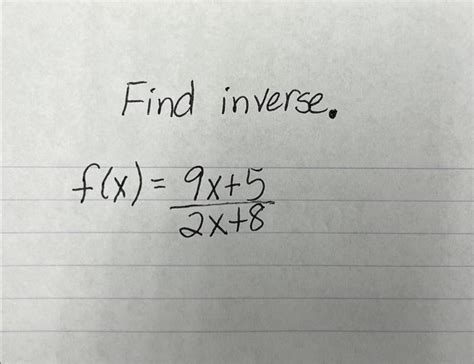 Find inverse.
f(x) = 9x+5
2x+8